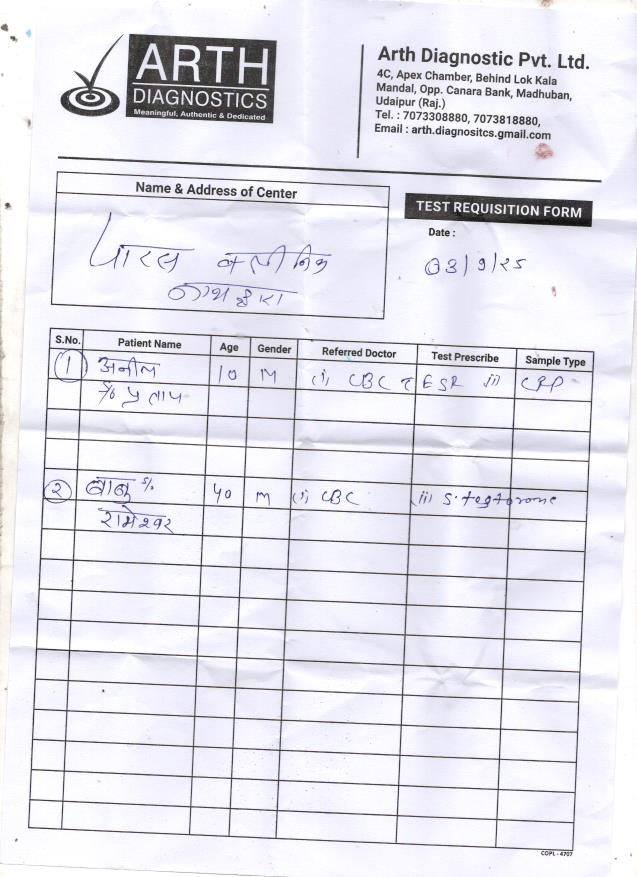 ARTH
DIAGNOSTICS
Meaningful, Authentic & Dedicated
Arth Diagnostic Pvt. Ltd.
4C, Apex Chamber, Behind Lok Kala
Mandal, Opp. Canara Bank, Madhuban,
Udaipur (Raj.)
Tel. : 7073308880, 7073818880,
Email : arth.diagnositcs.gmail.com
Name & Address of Center
पारस क्लीनिक
नाथद्वारा
TEST REQUISITION FORM
Date :
03/9/25
S.No. Patient Name Age Gender Referred Doctor Test Prescribe Sample Type
1 अनील 10 M (i) CBC ESR ii) CRP
प्रताप
2 बाबु S/o 40 M (i) CBC (ii) S. tegtorone
रामेश्वर
COPL - 4707